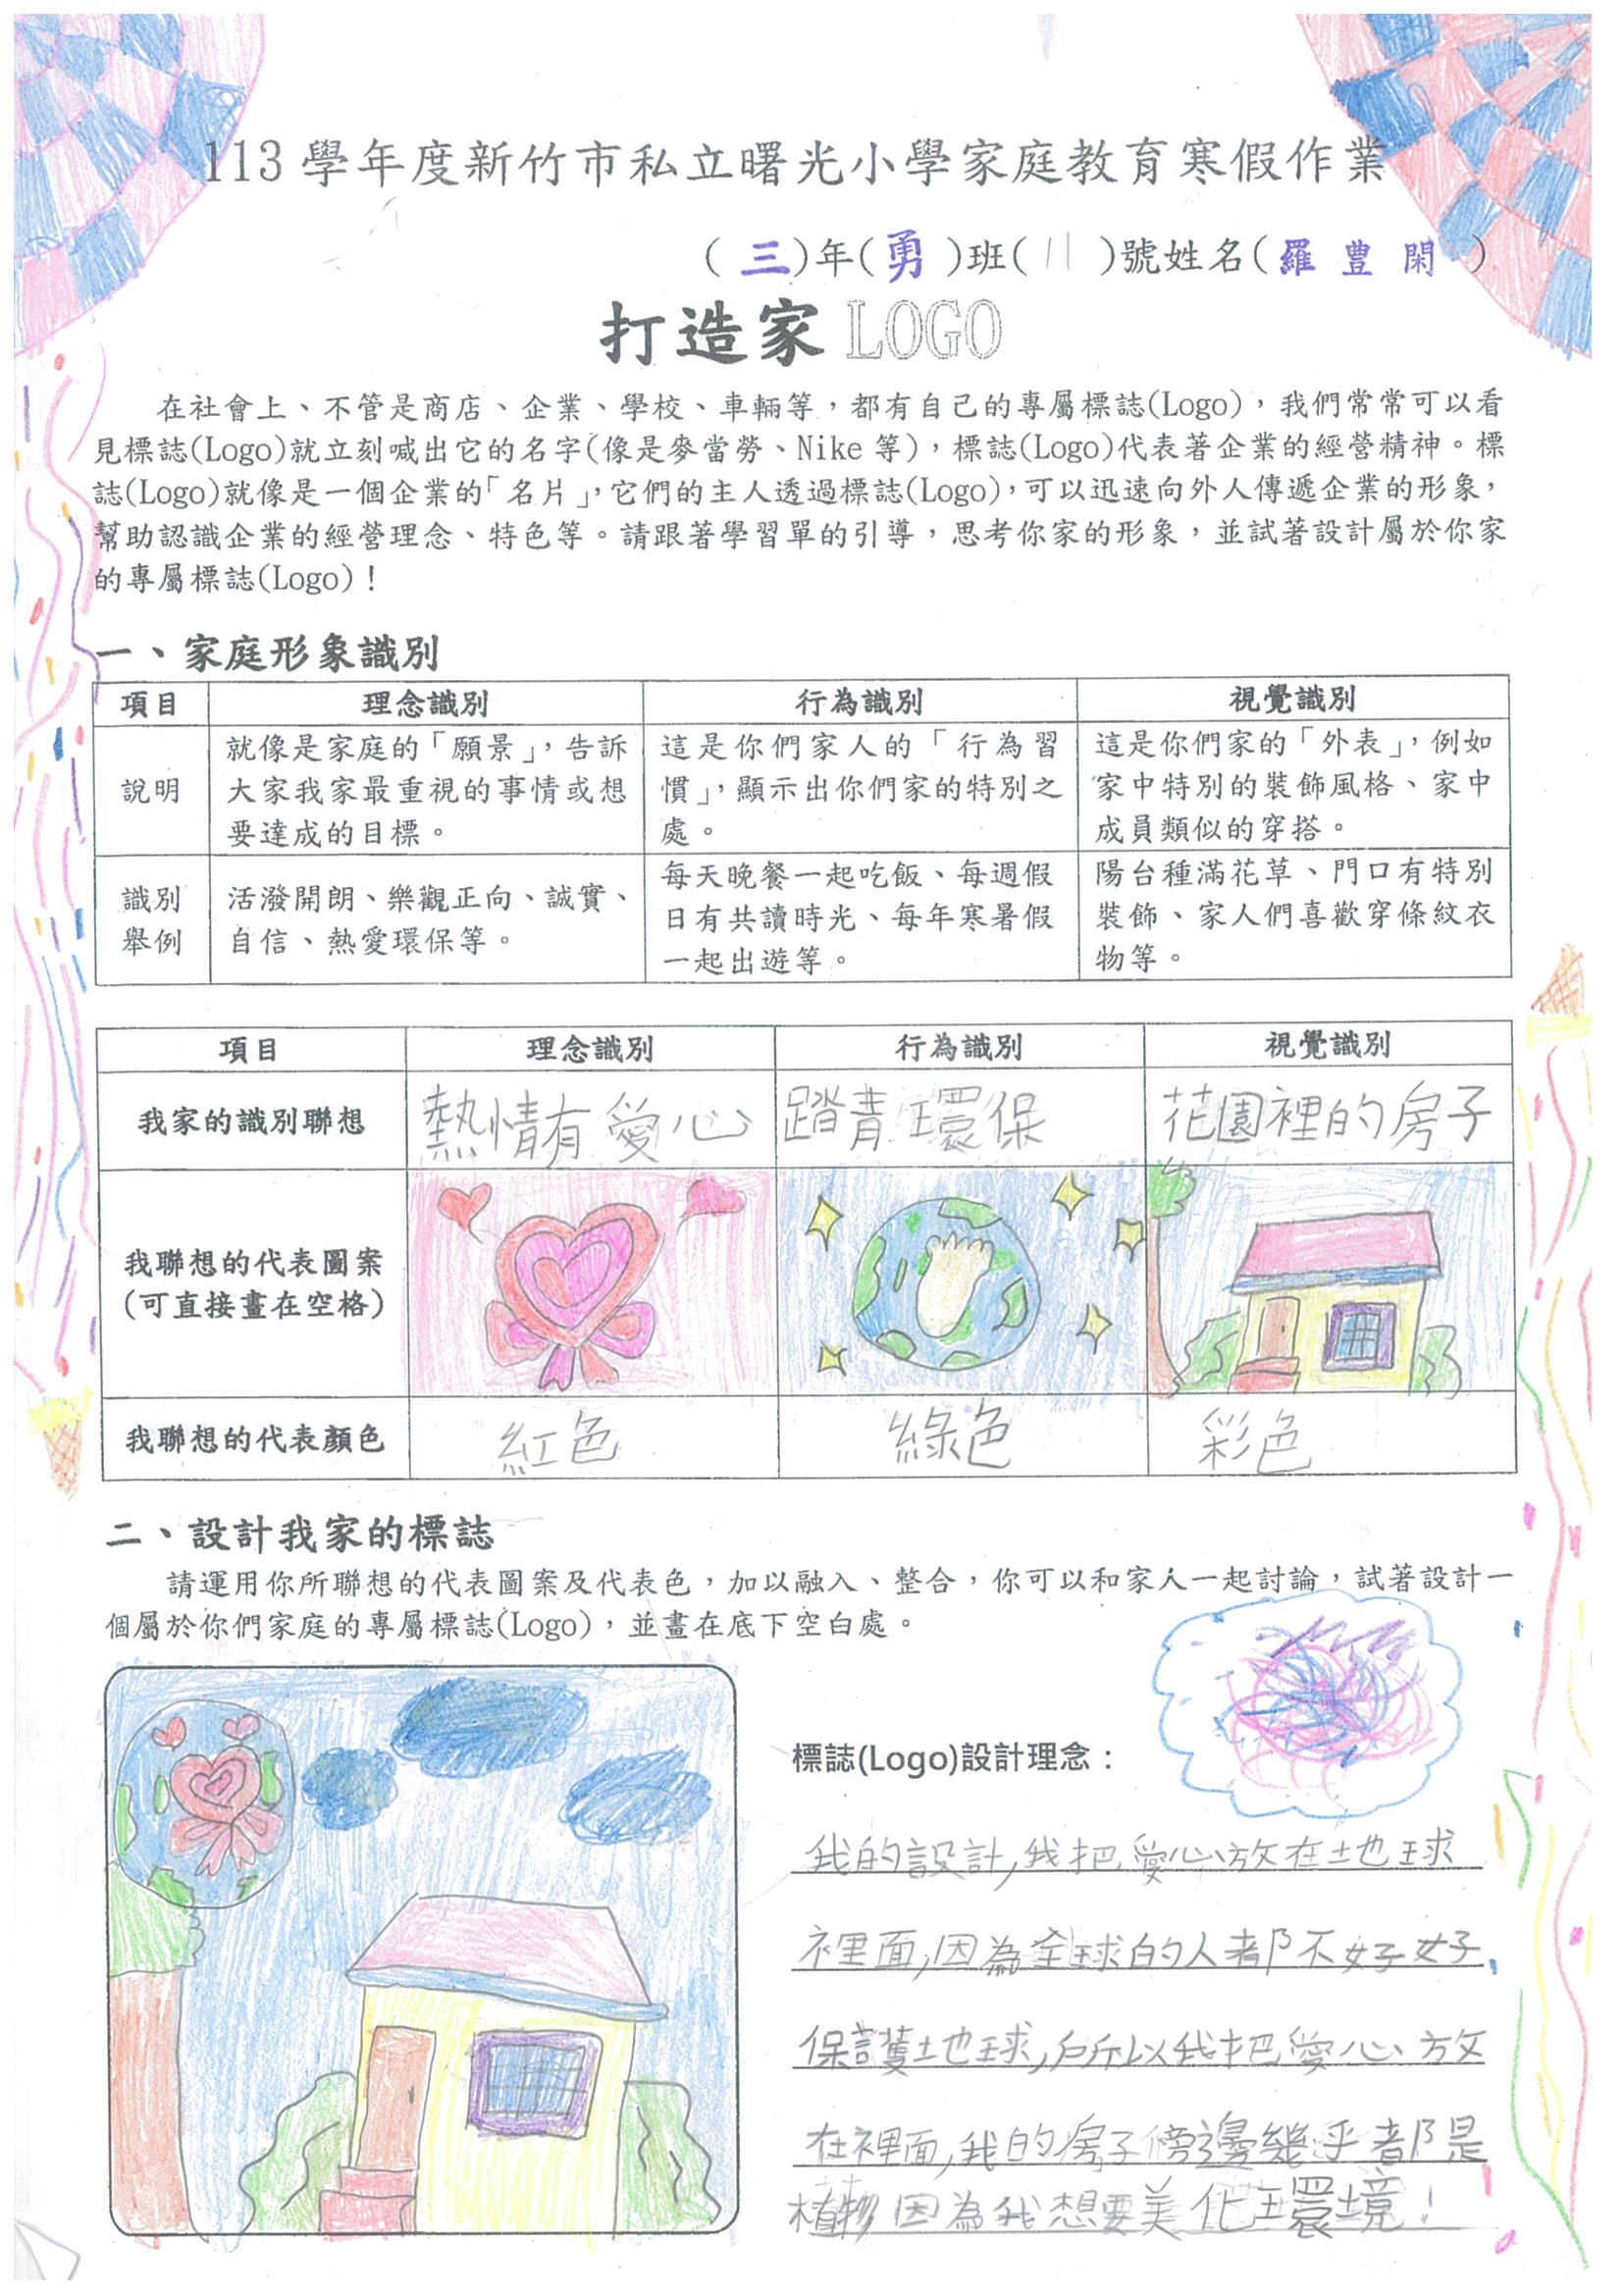 113 學年度新竹市私立曙光小學家庭教育寒假作業
( 三 )年( 勇 )班( 11 )號姓名( 羅 豊 閑 )
打造家 LOGO
在社會上、不管是商店、企業、學校、車輛等，都有自己的專屬標誌(Logo)，我們常常可以看
見標誌(Logo)就立刻喊出它的名字(像是麥當勞、Nike 等)，標誌(Logo)代表著企業的經營精神。標
誌(Logo)就像是一個企業的「名片」，它們的主人透過標誌(Logo)，可以迅速向外人傳遞企業的形象，
幫助認識企業的經營理念、特色等。請跟著學習單的引導，思考你家的形象，並試著設計屬於你家
的專屬標誌(Logo)！
一、家庭形象識別
項目 理念識別 行為識別 視覺識別
說明
就像是家庭的「願景」，告訴
大家我家最重視的事情或想
要達成的目標。
這是你們家人的「行為習
慣」，顯示出你們家的特別之
處。
這是你們家的「外表」，例如
家中特別的裝飾風格、家中
成員類似的穿搭。
識別
舉例
活潑開朗、樂觀正向、誠實、
自信、熱愛環保等。
每天晚餐一起吃飯、每週假
日有共讀時光、每年寒暑假
一起出遊等。
陽台種滿花草、門口有特別
裝飾、家人們喜歡穿條紋衣
物等。
項目 理念識別 行為識別 視覺識別
我家的識別聯想 熱情有愛心 踏青環保 花園裡的房子
我聯想的代表圖案
(可直接畫在空格)
我聯想的代表顏色 紅色 綠色 彩色
二、設計我家的標誌
請運用你所聯想的代表圖案及代表色，加以融入、整合，你可以和家人一起討論，試著設計一
個屬於你們家庭的專屬標誌(Logo)，並畫在底下空白處。
標誌(Logo)設計理念：
我的設計，我把愛心放在地球
裡面，因為全球的人都不好好
保護地球，所以我把愛心放
在裡面，我的房子傍邊幾乎都是
植物因為我想要美化環境！